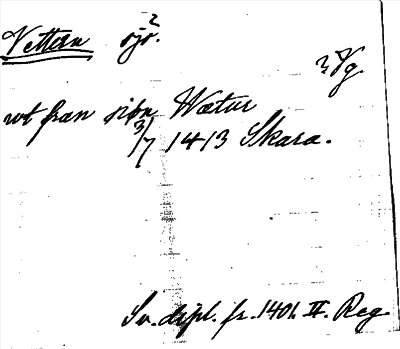 Vettern sjö.²
? Vg
vt fran siön Wætur
3/7 1413 Skara.
Sv. dipl. fr. 1401. II. Reg